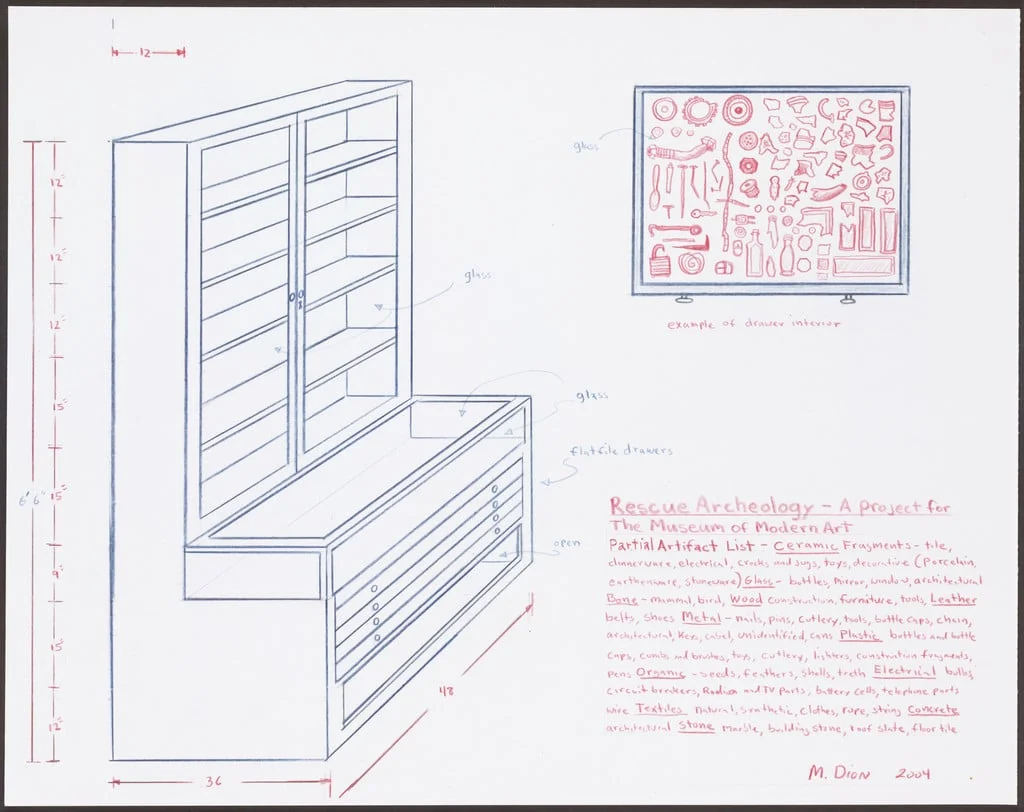 12
12"
12"
12"
15"
15"
9"
15"
12"
6'6"
36
48
glass
glass
flatfile drawers
open
glass
example of drawer interior
Rescue Archeology – A Project for
The Museum of Modern Art
Partial Artifact List – Ceramic Fragments – tile,
dinnerware, electrical, crocks and jugs, toys, decorative (porcelain,
earthenware, stoneware) Glass – bottles, mirror, window, architectural
Bone – mammal, bird, Wood construction, furniture, tools, Leather
belts, shoes Metal – nails, pins, cutlery, tools, bottle caps, chain,
architectural, keys, cabel, unidentified, cans Plastic bottles and bottle
caps, combs and brushes, toys, cutlery, lighters, construction fragments,
pens Organic – seeds, feathers, shells, teeth Electrical bulbs,
circuit breakers, Radios and TV parts, battery cells, telephone parts
wire Textiles natural, synthetic, clothes, rope, string Concrete
architectural Stone marble, building stone, roof slate, floor tile
M. Dion 2004